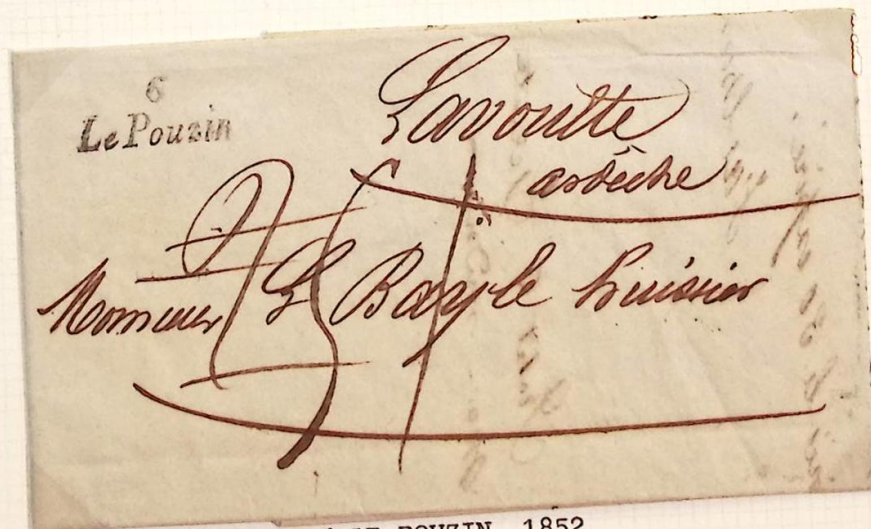 6
Le Pouzin
Lavoulte
ardèche
Monsieur L Bayle huissier
LE POUZIN 1852